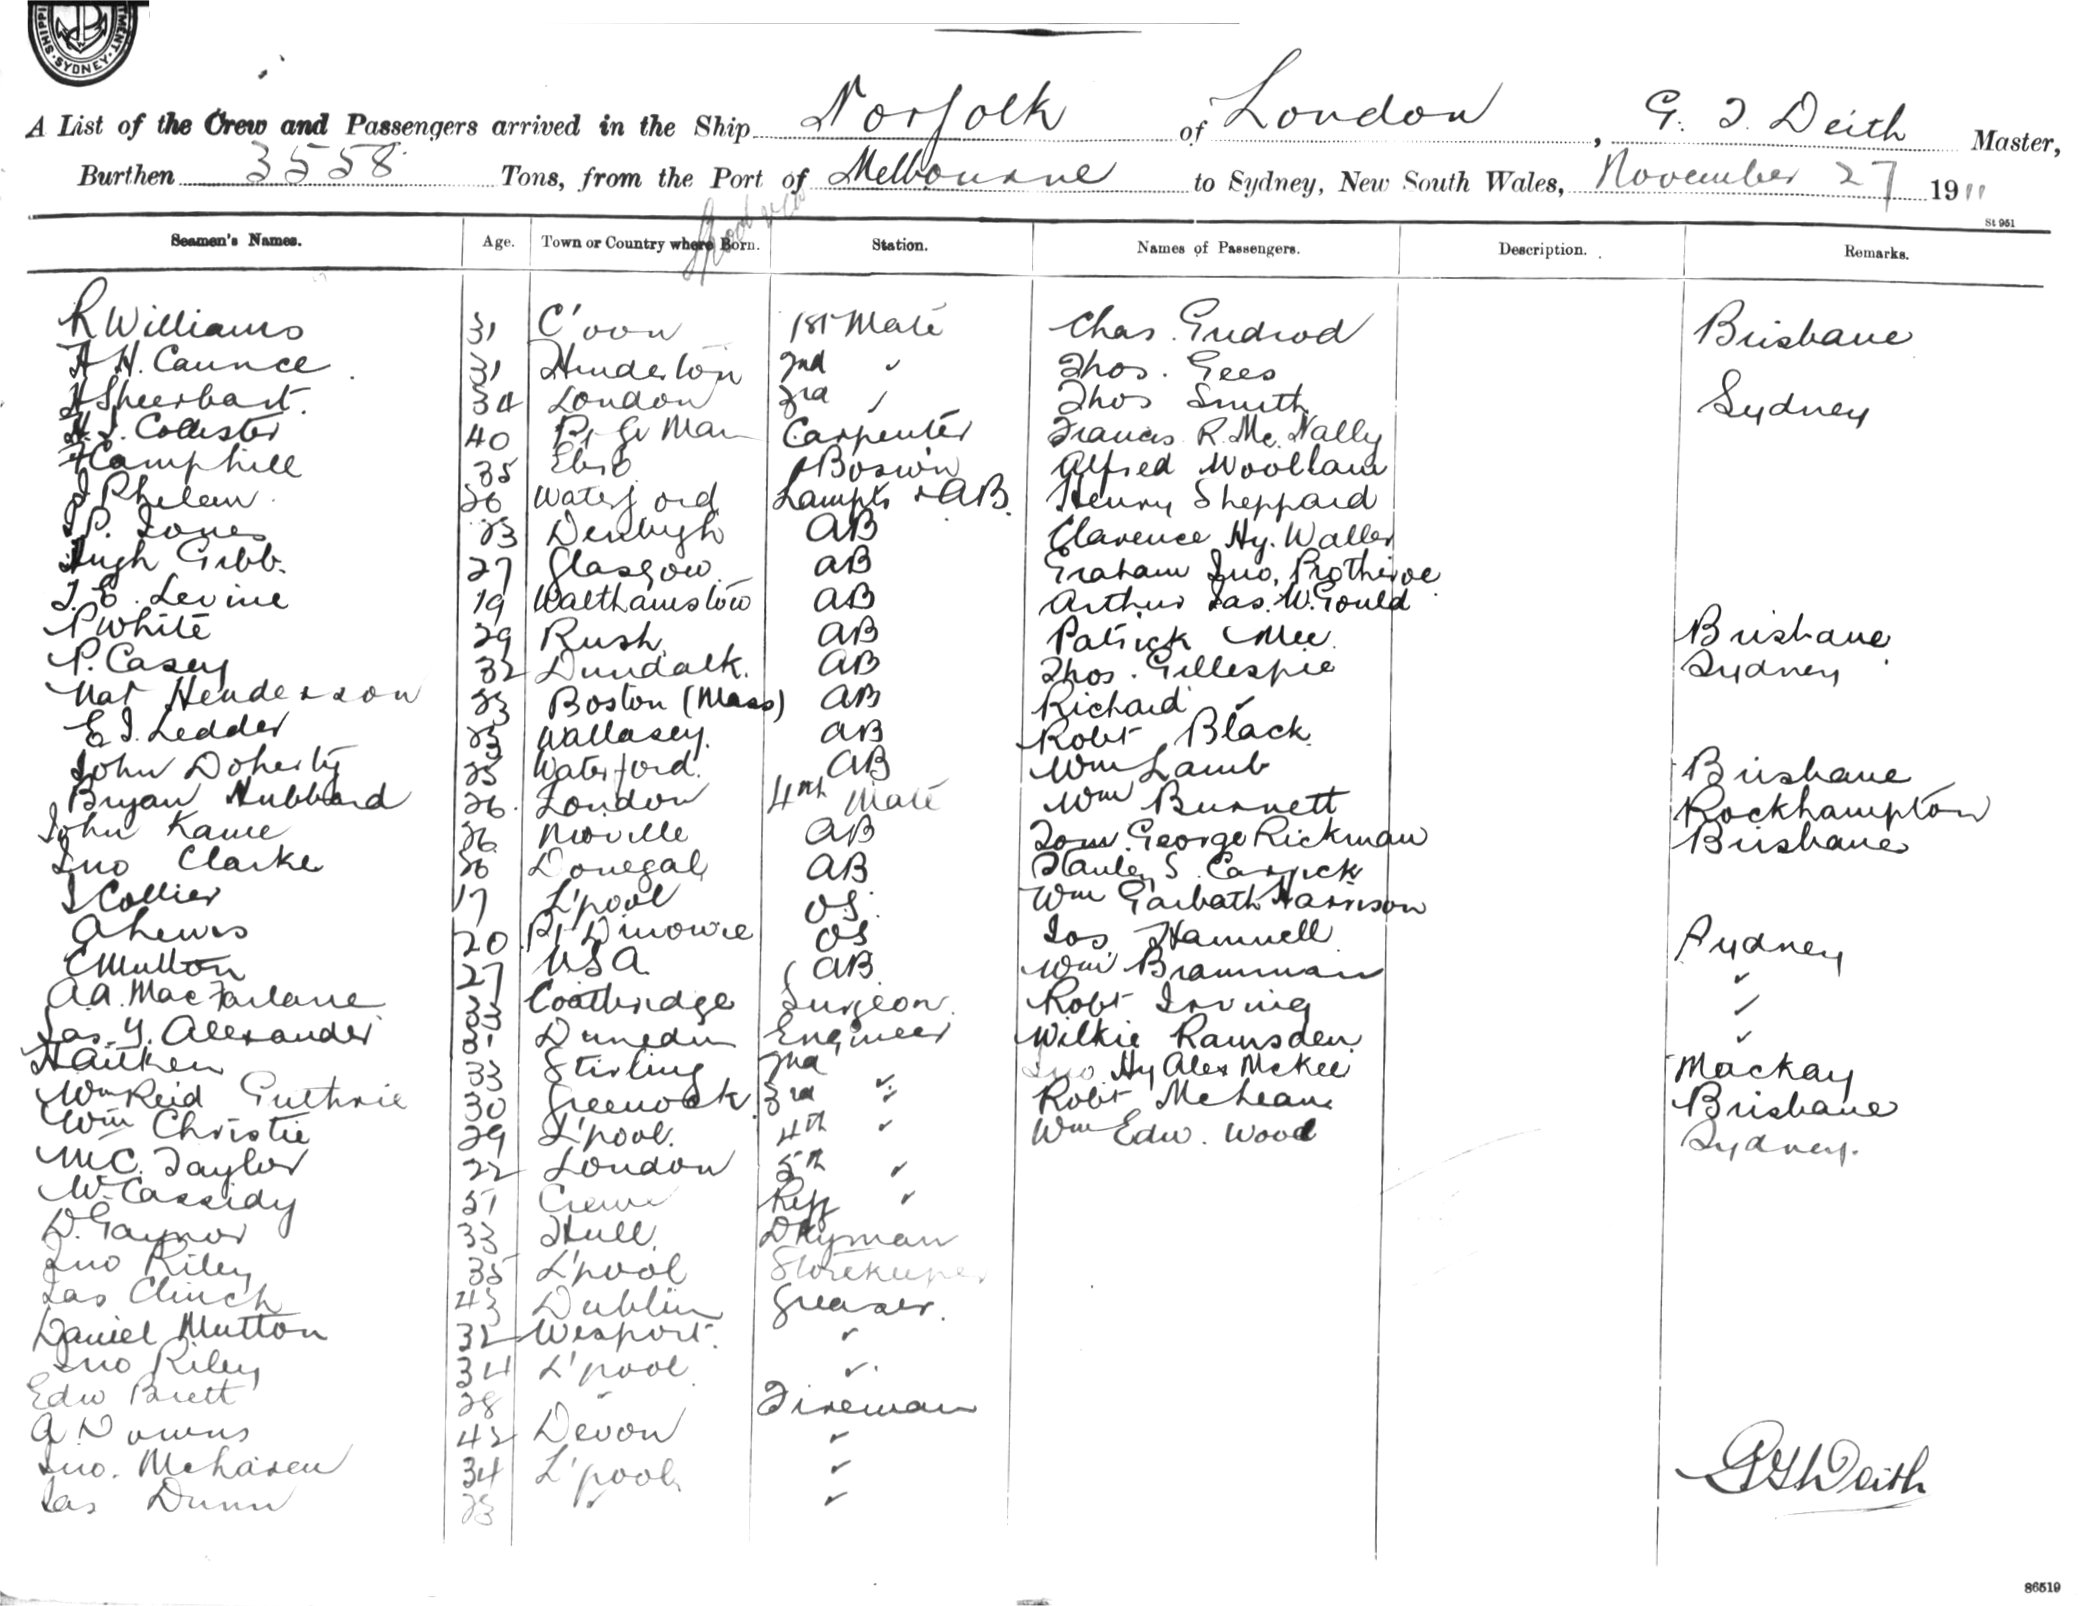 SHIPPI MENT. SYDNEY.
A List of the Crew and Passengers arrived in the Ship Norfolk of London, G. T. Deith Master,
Burthen 3558 Tons, from the Port of Melbourne to Sydney, New South Wales, November 27 1911
St 951
Seamen's Names. Age. Town or Country where Born. Station. Names of Passengers. Description. Remarks.
R Williams 31 C'oon 1st Mate Chas. Gudrod Brisbane
A H. Caunce 31 Hinderton 2nd " Thos. Gees
H Sheerbart. 34 London 3rd " Thos Smith Sydney
H. J. Collister 40 Carpenter Francis R. Mc. Nally
Camphill 35 Bosw'n Alfred Woollam
J Phelan 26 Waterford Lamps & AB. Henry Sheppard
J P. Jones 23 Denbigh AB Clarence Hy. Waller
Hugh Gibb. 27 Glasgow AB Graham Jno. Protheroe
J. E. Levine 19 Walthamstow AB Arthur Jas. W. Gould
P White 29 Rush AB Patrick Mee Brisbane
P. Casey 32 Dundalk. AB Thos. Gillespie Sydney
Nat Henderson 23 Boston (Mass) AB Richard "
E J. Ledder 23 Wallasey. AB Robt Black
John Doherty 25 Waterford. AB Wm Lamb Brisbane
Bryan Hubbard 26. London 4th Mate Wm Burnett Rockhampton
John Kane 26 Moville AB Tom George Rickman Brisbane
Jno Clarke 26 Donegal AB Stanley S. Carrick
J Collier 17 L'pool OS. Wm Garbath Harrison
A Lewis 20 Pt Dinorwic OS Jos. Hamnell Sydney
C Mutton 27 USA AB Wm Bramman "
A A. MacFarlane Coatbridge Surgeon Robt Irving "
Jas. Y. Alexander Dunedin Engineer Wilkie Ramsden "
H Aitken 33 Stirling 2nd Jno Hy Alex McKee Mackay
Wm Reid Guthrie 30 Greenock 3rd " Robt McLean Brisbane
Wm Christie 29 L'pool. 4th " Wm Edw. Wood Sydney.
M C. Taylor 22 London 5th "
W. Cassidy 51 Crewe Refg "
D. Gaynor 33 Hull Dkyman
Jno Riley 35 L'pool Storekeeper
Jas Clinch 43 Dublin Greaser.
Daniel Mutton 32 Wesport. "
Jno Riley 34 L'pool "
Edw Brett 28 " Fireman
A Downs 42 Devon "
Jno. McLaren 34 L'pool "
Jas Dunn 23 " "
G T Deith
86519